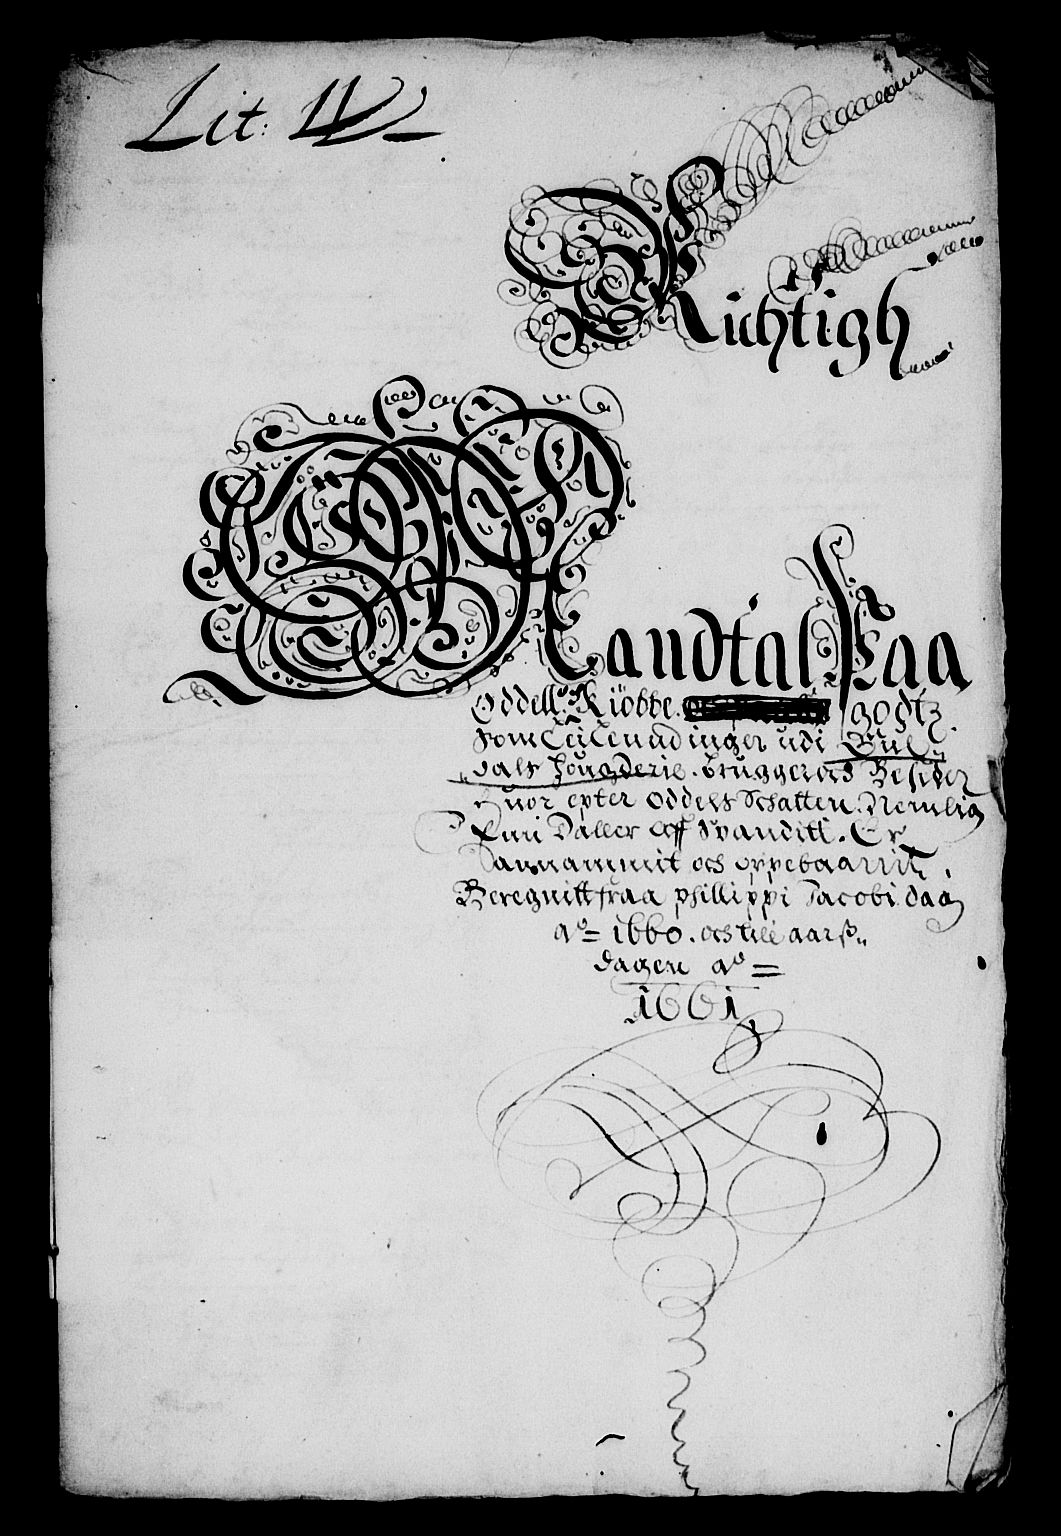 Lit: W
Richtigh
Mandtal Paa
Oddell. Kiöbbe. godtz
Som Leilendinger udi Gul„
dals fougderie. bruggeres Besider
huor epter Oddels Schatten. Nemlig
Daller aff Spanditt. Er
Annammit och oppebaarrit
Beregnitt fraa phillippi Jacobi dag
ao= 1660. och till aarß„
dagen ao=
1661